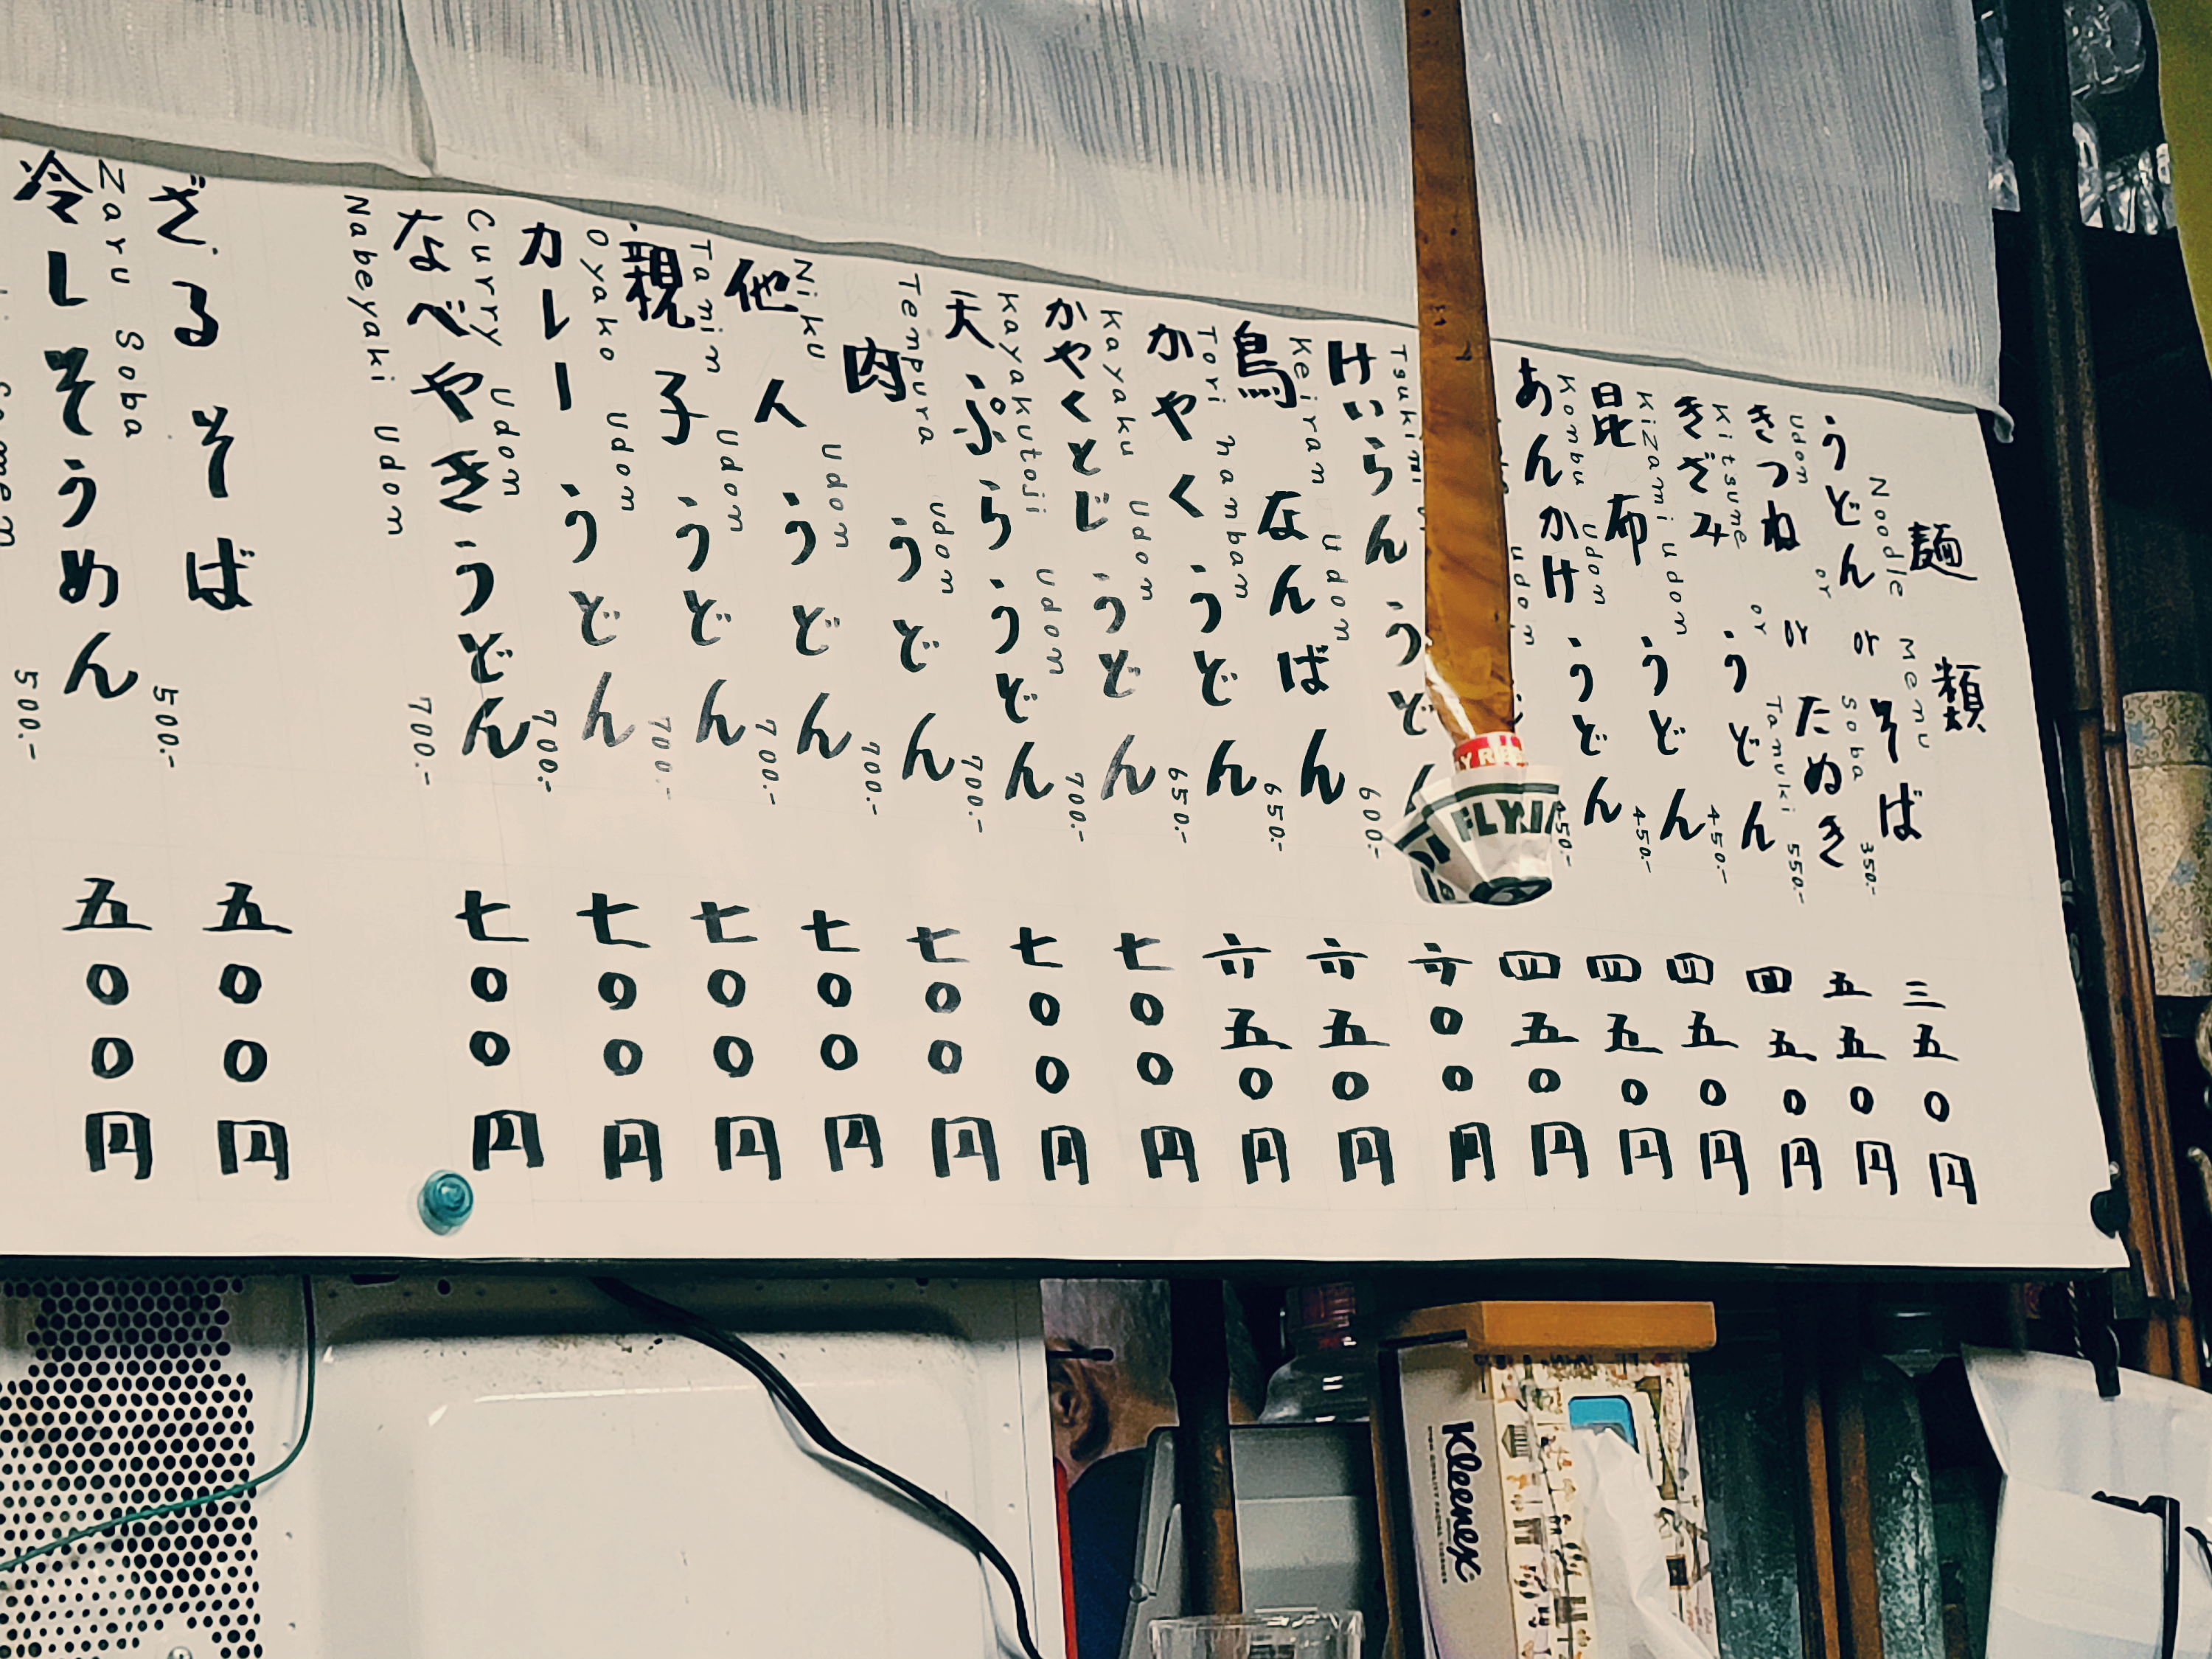 麺類
Noodle Menu
うどん or そば 三五〇円
Udon or Soba 350.-
きつね or たぬき 五五〇円
Kitsune or Tanuki 550.-
きざみうどん 四五〇円
Kizami udon 450.-
昆布うどん 四五〇円
Konbu Udon 450.-
あんかけうどん 四五〇円
udon 450.-
四五〇円
Tsukimi
けいらんうどん 六〇〇円
Keiran Udon 600.-
鳥なんばん 六五〇円
Tori nanban 650.-
かやくうどん 六五〇円
Kayaku Udon 650.-
かやくとじうどん 七〇〇円
Kayakutoji Udon 700.-
天ぷらうどん 七〇〇円
Tempura Udon 700.-
肉うどん 七〇〇円
Niku Udon 700.-
他人うどん 七〇〇円
Tanin Udon 700.-
親子うどん 七〇〇円
Oyako Udon 700.-
カレーうどん 七〇〇円
Curry Udon 700.-
なべやきうどん 七〇〇円
Nabeyaki Udon 700.-
ざるそば 五〇〇円
Zaru Soba 500.-
冷しそうめん 五〇〇円
500.-
Kleenex